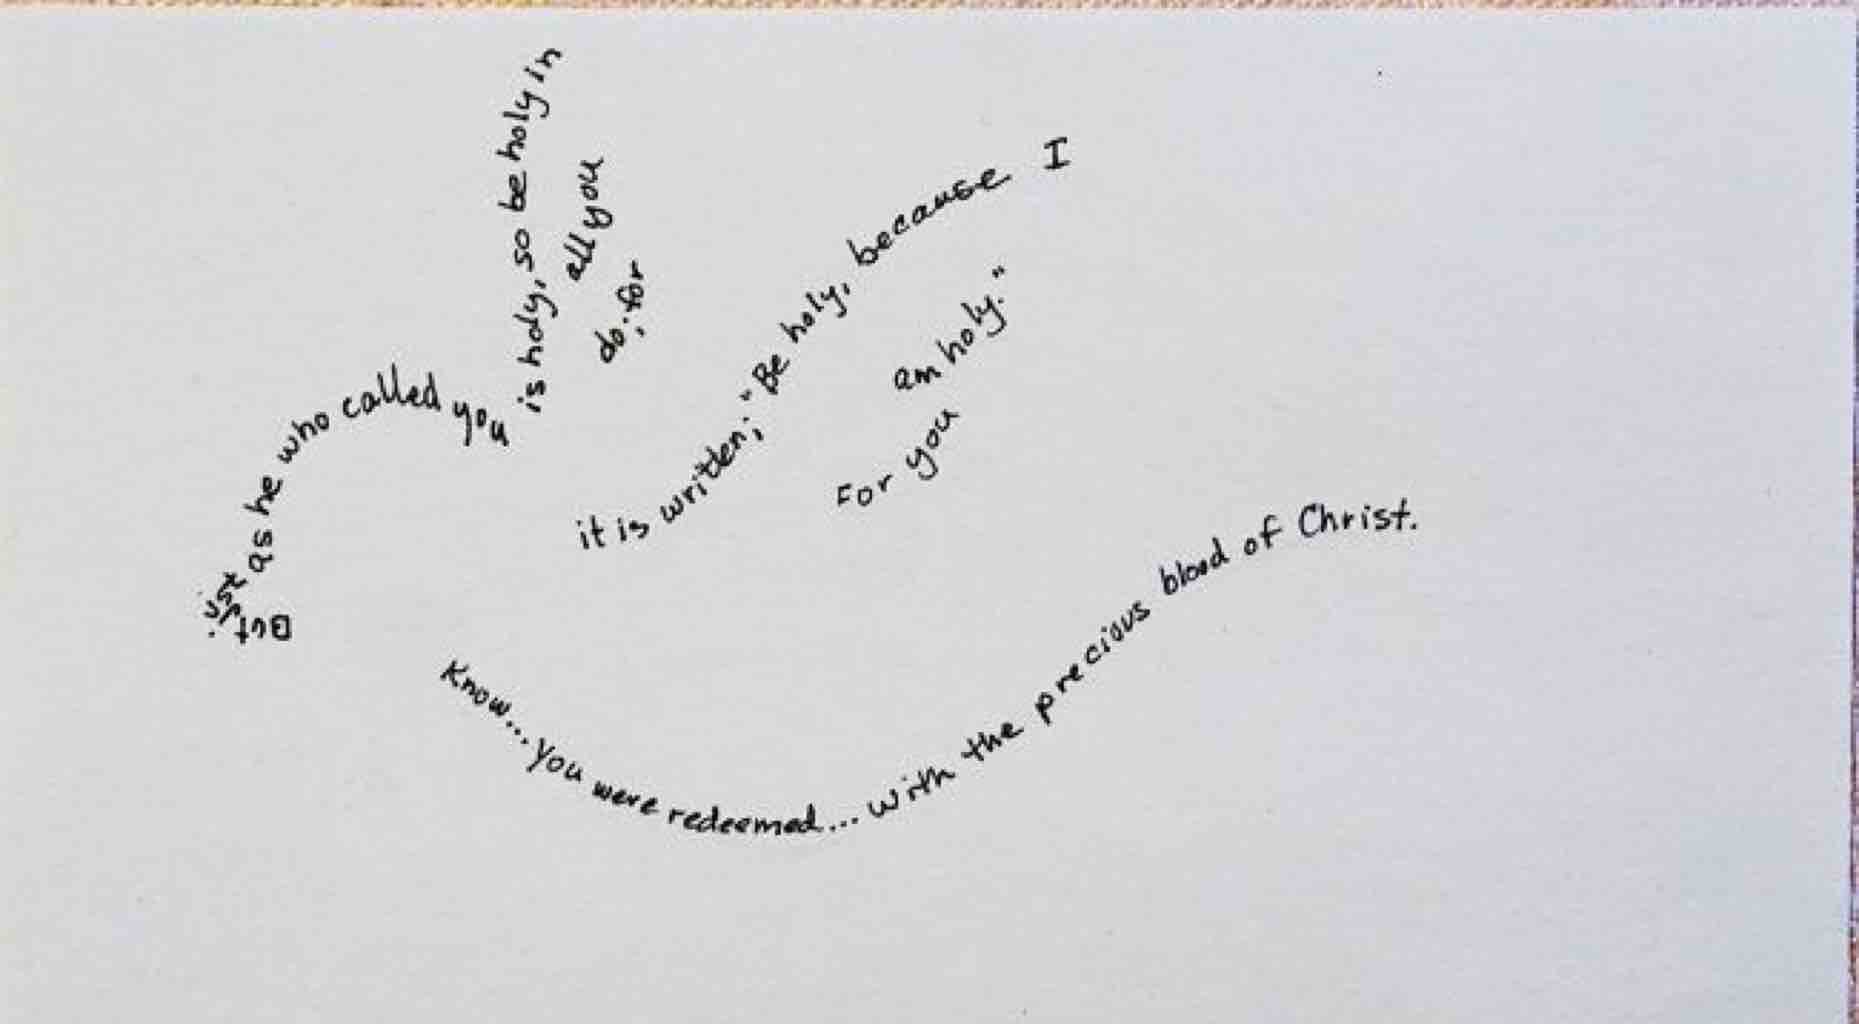 But just as he who called you
is holy, so be holy in
all you
do; for
it is written; "Be holy, because I
am holy."
For you
Know... you were redeemed... with the precious blood of Christ.